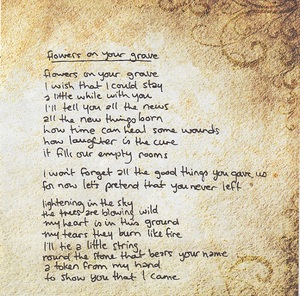 flowers on your grave
flowers on your grave
I wish that I could stay
a little while with you
I'll tell you all the news
all the new things born
how time can heal some wounds
how laughter is the cure
it fills our empty rooms
I won't forget all the good things you gave us
for now let's pretend that you never left
lightening in the sky
the trees are blowing wild
my heart is in this ground
my tears they burn like fire
I'll tie a little string
round the stone that bears your name
a token from my hand
to show you that I came